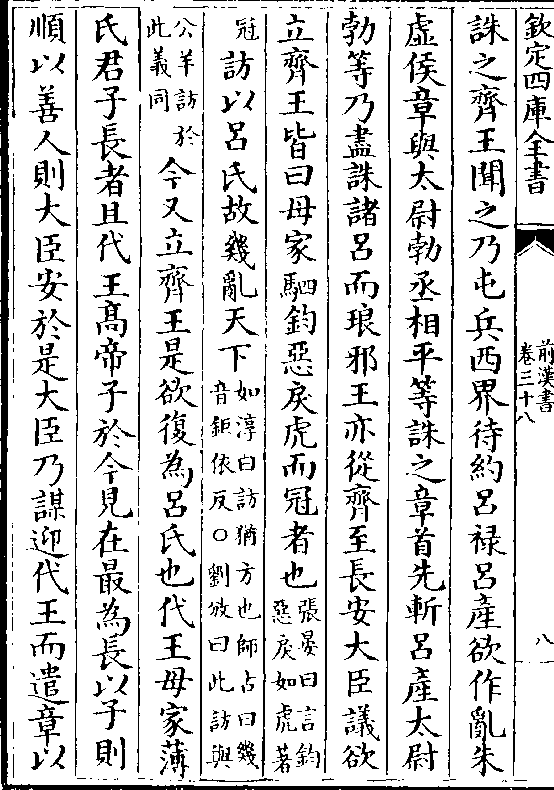 欽定四庫全書
前漢書
卷三十八
八
誅之齊王聞之乃屯兵西界待約呂祿呂產欲作亂朱
虛侯章與太尉勃丞相平等誅之章首先斬呂產太尉
勃等乃盡誅諸呂而琅邪王亦從齊至長安大臣議欲
立齊王皆曰母家駟鈞惡戾虎而冠者也張晏曰言鈞
惡戾如虎著
冠訪以呂氏故幾亂天下如淳曰訪猶方也師古曰幾
音鉅依反○劉攽曰此訪與
公羊訪於
此義同今又立齊王是欲復為呂氏也代王母家薄
氏君子長者且代王髙帝子於今見在最為長以子則
順以善人則大臣安於是大臣乃謀迎代王而遣章以